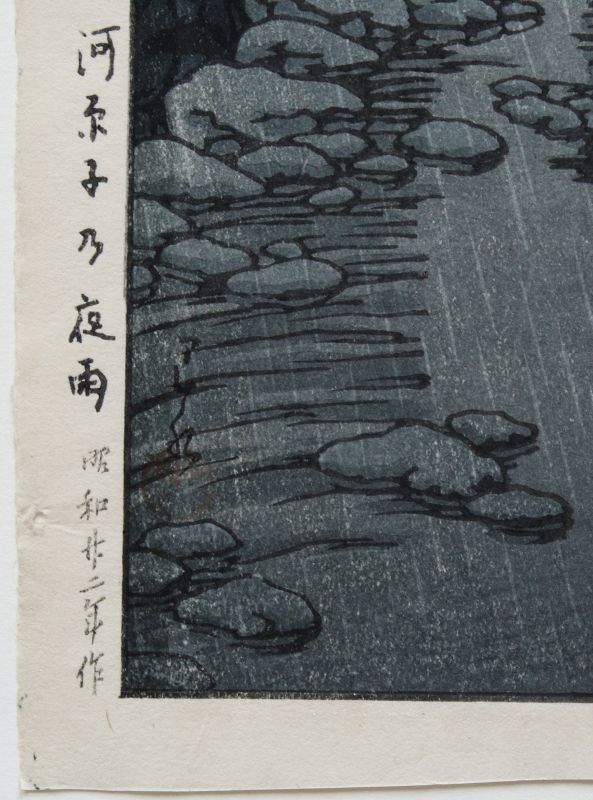 河原子乃夜雨
昭和廿二年作